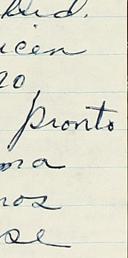 dad.
icen
20,
pronto
ma
nos
se